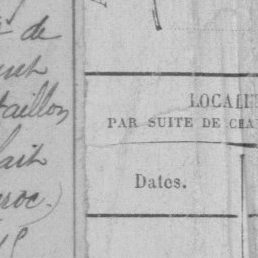 de
taillon
fait
aroc.)
LOCALI
PAR SUITE DE CHA
Dates.